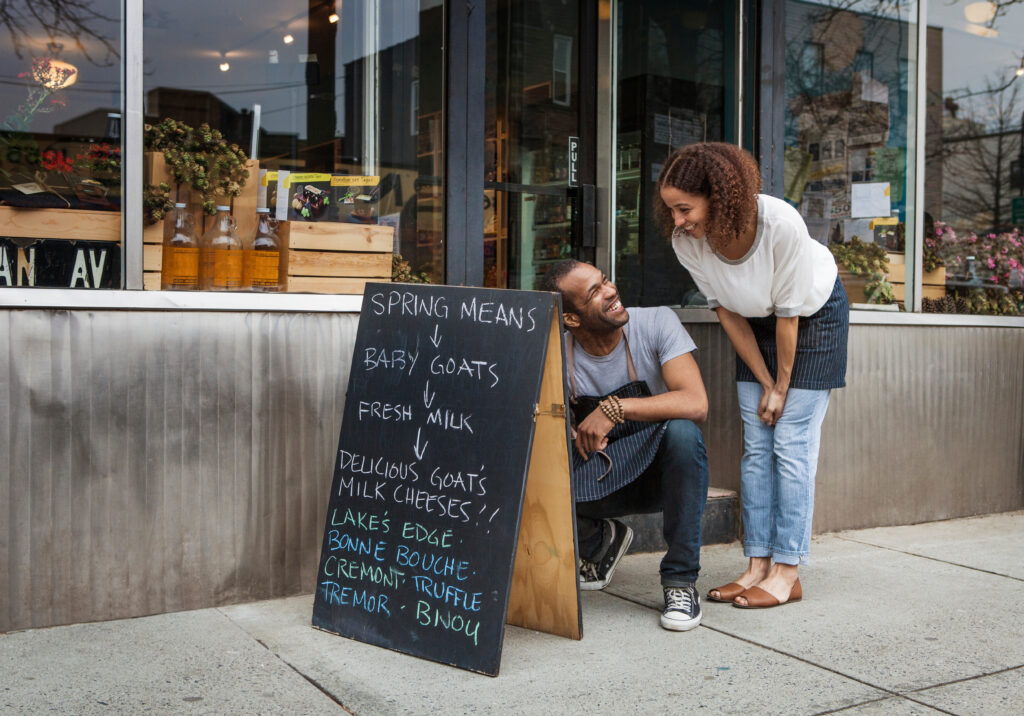 AN AV
PULL
SPRING MEANS
↓
BABY GOATS
↓
FRESH MILK
↓
DELICIOUS GOAT'S
MILK CHEESES!!
LAKE'S EDGE·
BONNE BOUCHE·
CREMONT· TRUFFLE
TREMOR · BIJOU